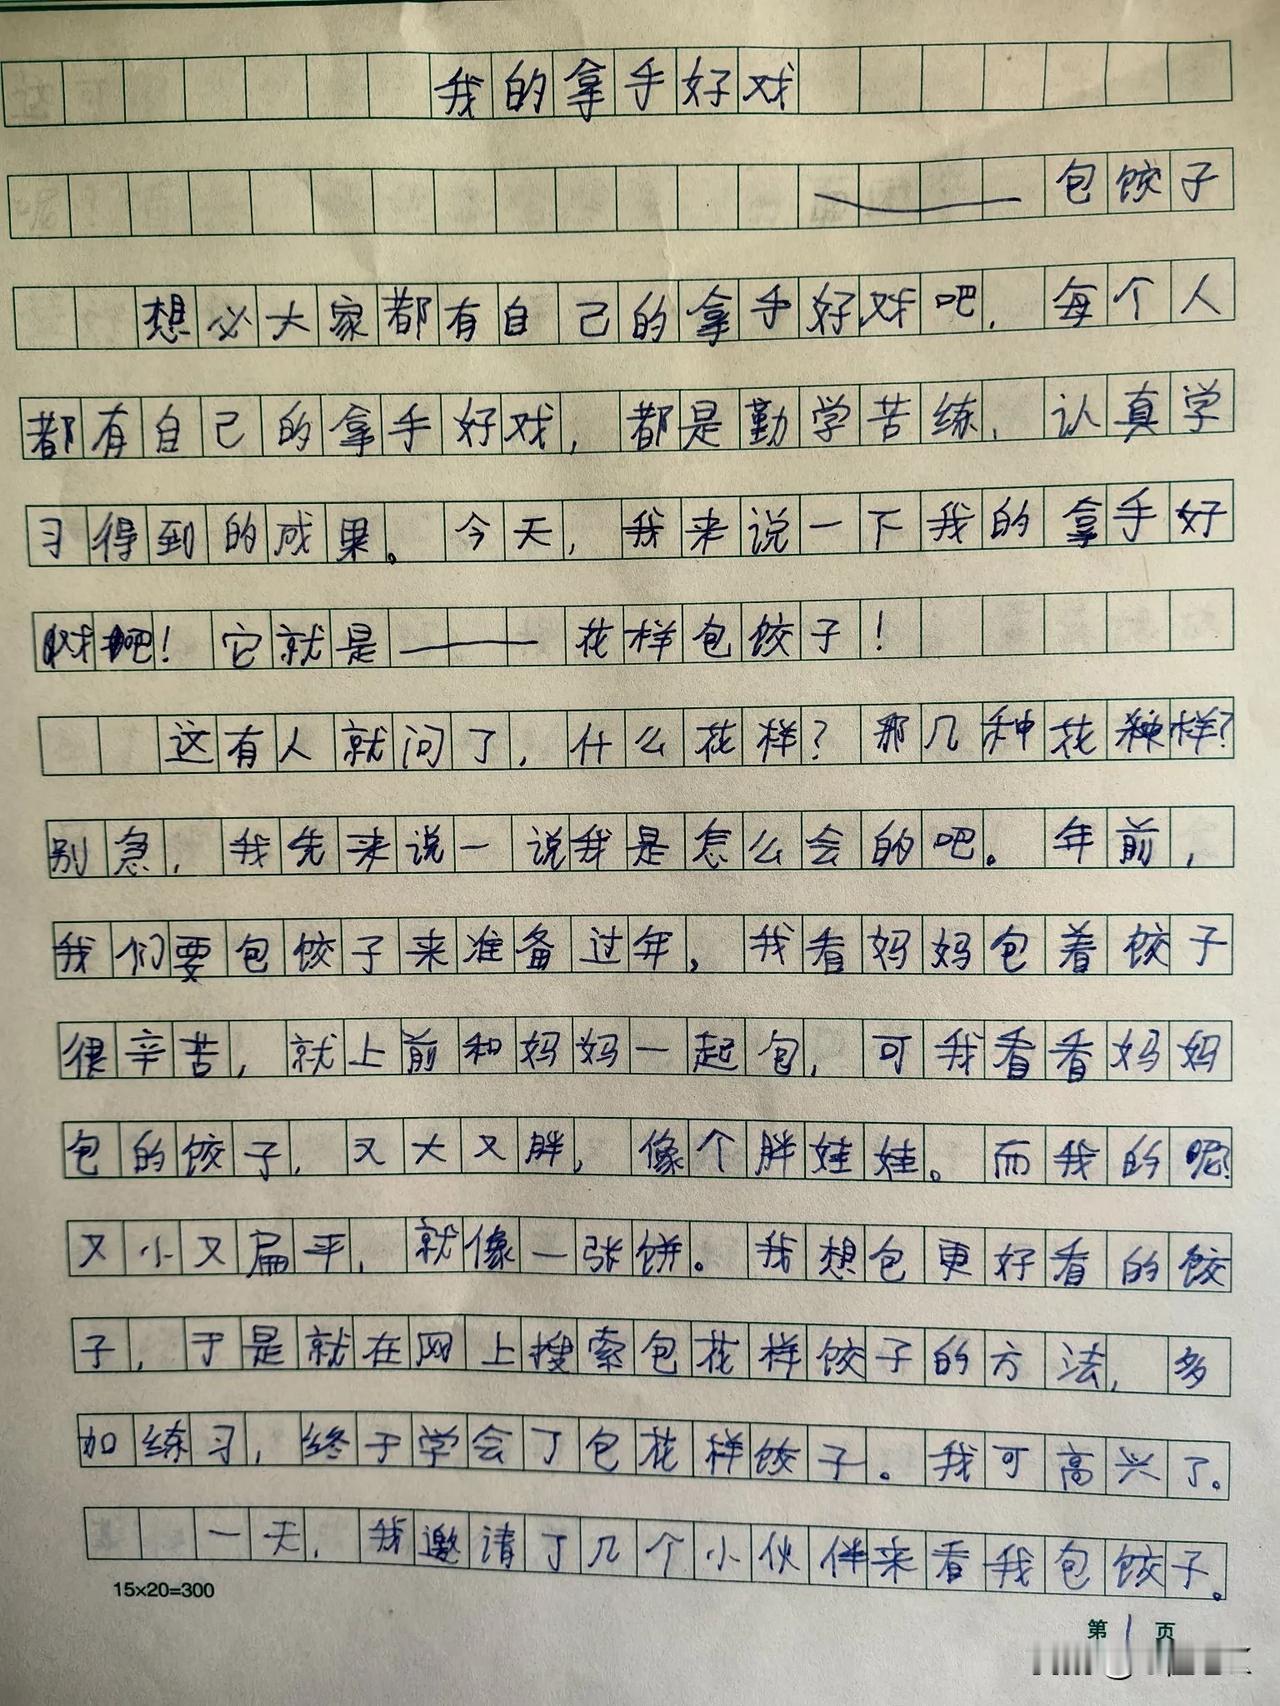 我的拿手好戏
——包饺子
想必大家都有自己的拿手好戏吧,每个人
都有自己的拿手好戏,都是勤学苦练、认真学
习得到的成果。今天,我来说一下我的拿手好
戏吧!它就是——花样包饺子!
这有人就问了,什么花样?那几种花种样?
别急,我先来说一说我是怎么会的吧。年前,
我们要包饺子来准备过年,我看妈妈包着饺子
很辛苦,就上前和妈妈一起包,可我看看妈妈
包的饺子,又大又胖,像个胖娃娃。而我的呢?
又小又扁平,就像一张饼。我想包更好看的饺
子,于是就在网上搜索包花样饺子的方法,多
加练习,终于学会了包花样饺子。我可高兴了。
一天,我邀请了几个小伙伴来看我包饺子。
15×20=300
第1页